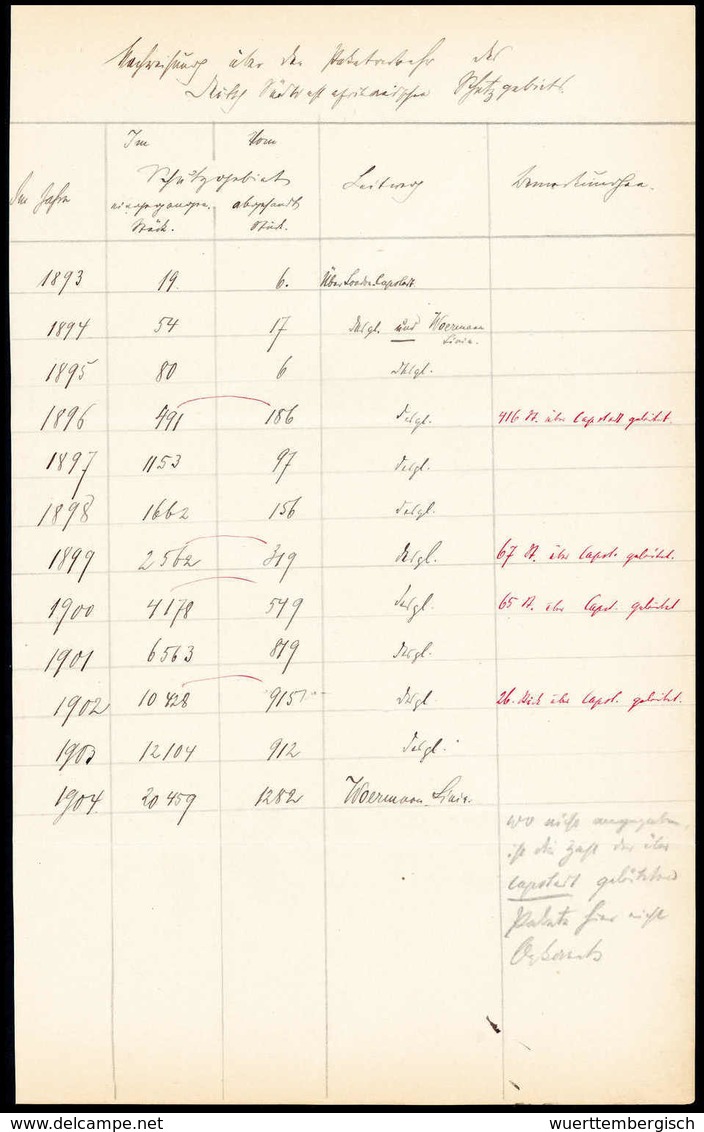 Nachweisung über den Paketverkehr des
Deutsch Südwestafrikanischen Schutzgebiets.
Im Vom
Im Jahre Schutzgebiet Leitweg Bemerkungen.
eingegangen. abgesandt
Stück. Stück.
1893 19 6. Über London Capstadt
1894 54 17 Desgl. und Woermann
Linie.
1895 80 6 Desgl.
1896 491 186 Desgl. 416 St. über Capstadt geleitet.
1897 1153 97 Desgl.
1898 1662 156 Desgl.
1899 2562 319 Desgl. 67 St. über Capst. geleitet.
1900 4178 549 Desgl. 65 St. über Capst. geleitet
1901 6563 819 Desgl.
1902 10428 915 Desgl. 26. Stück über Capst. geleitet.
1903 12104 912 Desgl.
1904. 20459 1282 Woermann Linie.
wo nicht angegeben,
ist die Zahl der über
Capstadt geleiteten
Pakete hier nicht
bekannt
delcampe.net wuerttembergisch